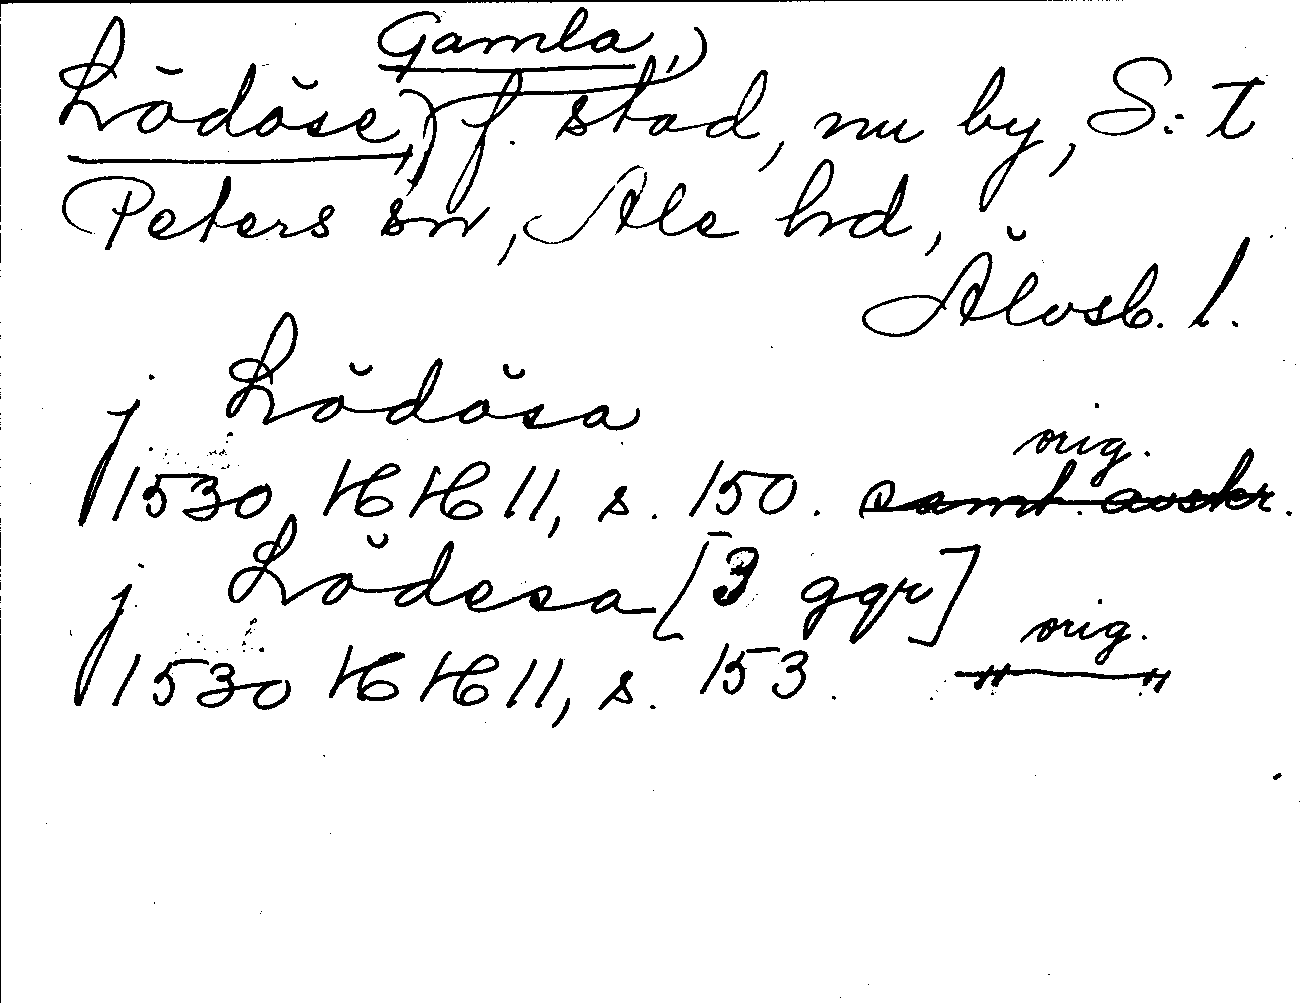 Gamla,
Lödöse, f. stad, nu by, S:t
Peters sn, Ale hd,
Älvsb. l.
j Lödösa
orig.
1530 HH 11, s. 150. samt. avskr.
j Lödesa [3 ggr]
orig.
1530 HH 11, s. 153. — " — "